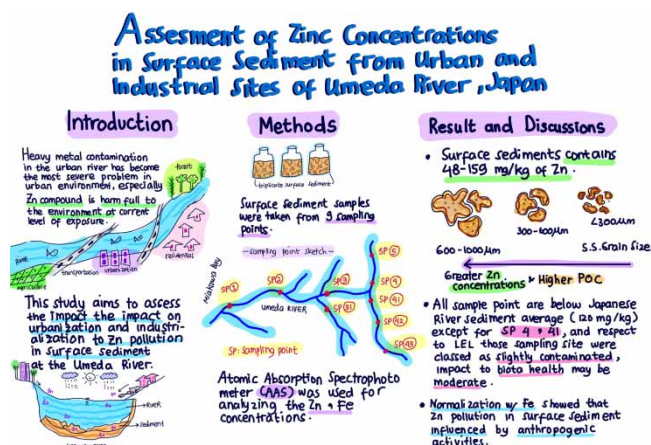 Assesment of Zinc Concentrations
in Surface Sediment from Urban and
Industrial Sites of Umeda River, Japan
Introduction
Heavy metal contamination
in the urban river has become
the most severe problem in
urban environment, especially
Zn compound is harm full to
the environment at current
level of exposure.
forest
River
residential
urbanization
transportation
agriculture
This study aims to assess
the impact the impact on
urbanization and industri-
alization to Zn pollution
in surface sediment
at the Umeda River.
River
Sediment
Methods
triplicate surface sediment
Surface sediment samples
were taken from 9 sampling
points.
-sampling point sketch-
Mikawa bay
SP 1
SP 2
SP 3
SP 31
SP 5
SP 4
SP 41
SP 42
SP 43
Umeda RIVER
SP: Sampling point
Atomic Absorption Spectrophoto
meter (AAS) was used for
analyzing the Zn & Fe
concentrations.
Result and Discussions
• Surface sediments contains
48-159 mg/kg of Zn.
600-1000µm
300-600µm
<300µm
S.S. Grain Size
Greater Zn
concentrations > Higher POC
• All sample point are below Japanese
River sediment average (120 mg/kg)
except for SP 4 & 41, and respect
to LEL those sampling site were
classed as slightly contaminated,
impact to biota health may be
moderate.
• Normalization w/ Fe showed that
Zn pollution in surface sediment
influenced by anthropogenic
activities.